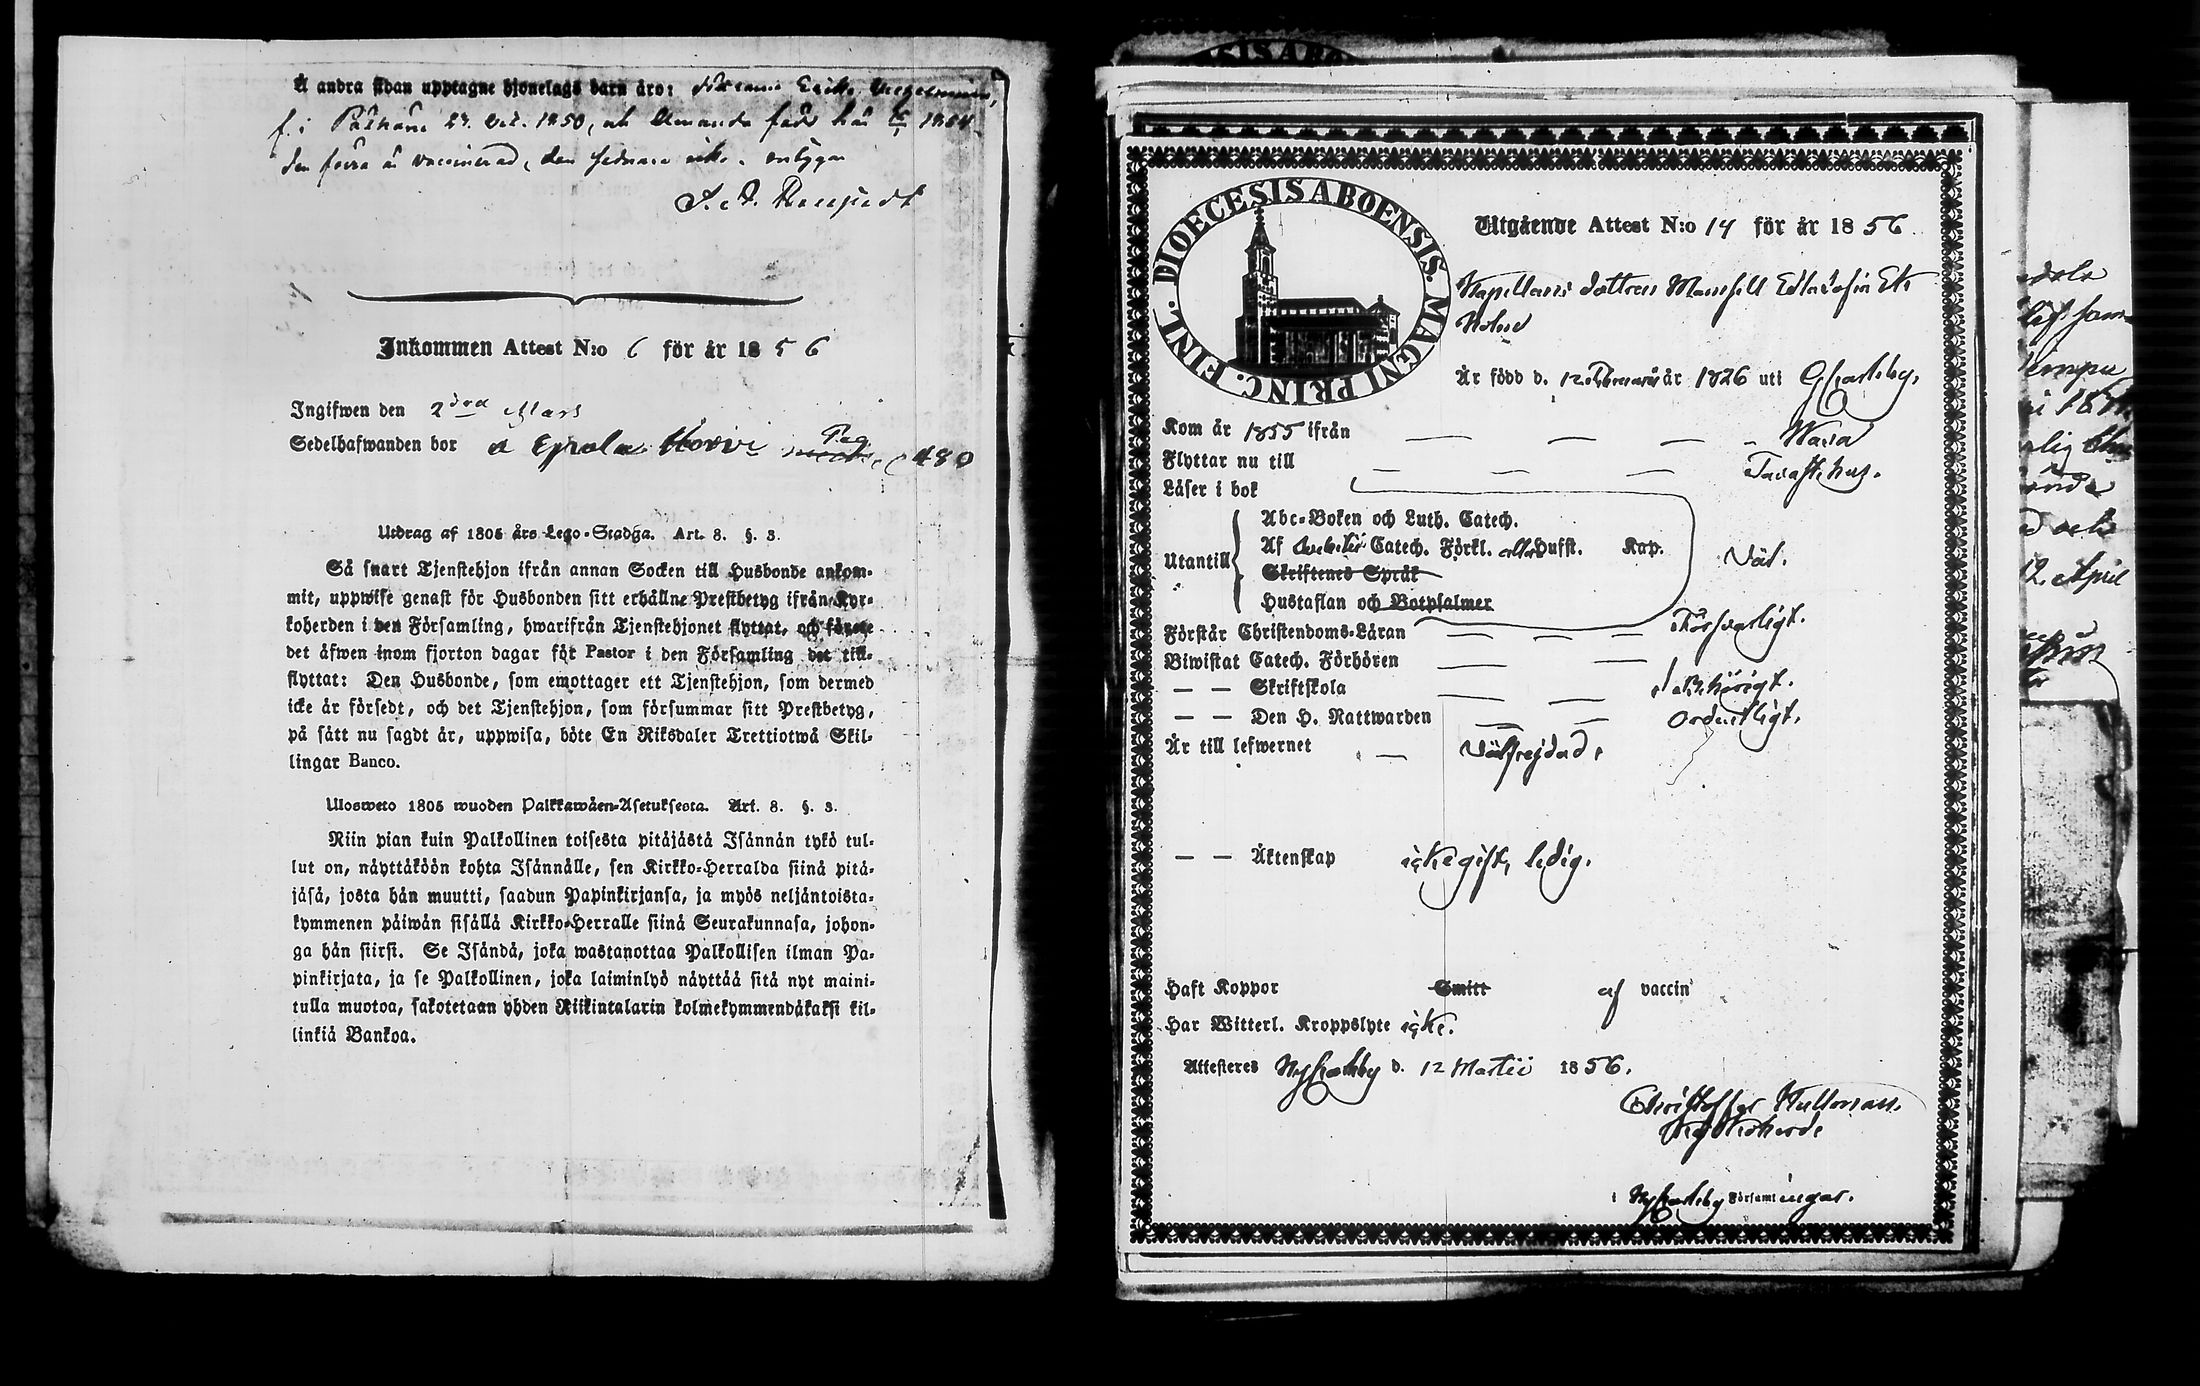 Å andra sidan upptagne hjonelags barn äro:
f. i 24. Oct. 1850, och Amanda född här
den förra är vaccinerad, den sednare icke. intygar
Inkommen Attest N:o 6 för år 1856
Ingifwen den 2dra Mars
Sedelhafwanden bor Pag. 480
Utdrag af 1805 års Lego-Stadga. Art. 8. §. 3.
Så snart Tjenstehjon ifrån annan Socken till Husbonde ankom-
mit, uppwise genast för Husbonden sitt erhållne Prestbetyg ifrån Kyr-
koherden i den Församling, hwarifrån Tjenstehjonet flyttat, och förete
det äfwen inom fjorton dagar för Pastor i den Församling det till-
flyttat: Den Husbonde, som emottager ett Tjenstehjon, som dermed
icke är försedt, och det Tjenstehjon, som försummar sitt Prestbetyg,
på sätt nu sagdt är, uppwisa, böte En Riksdaler Trettiotwå Skil-
lingar Banco.
Ulosweto 1805 wuoden Palkkawäen-Asetuksesta. Art. 8. §. 3.
Niin pian kuin Palkollinen toisesta pitäjästä Isännän tykö tul-
lut on, näyttäköön kohta Isännälle, sen Kirkko-Herralda siinä pitä-
jäsä, josta hän muutti, saadun Papinkirjansa, ja myös neljäntoista-
kymmenen päiwän sisällä Kirkko-Herralle siinä Seurakunnasa, johon-
ga hän siirsi. Se Isändä, joka wastanottaa Palkollisen ilman Pa-
pinkirjata, ja se Palkollinen, joka laiminlyö näyttää sitä nyt maini-
tulla muotoa, sakotetaan yhden Riikintalarin kolmekymmendäkaksi kil-
linkiä Bankoa.
DIOECESIS ABOENSIS. MAGNI PRINC. FINL.
Utgående Attest N:o 14 för år 1856
Kapellans dottren Mamsell
Är född d. 12 Februarii år 1826 uti Gkarleby.
Kom år 1855 ifrån Wasa
Flyttar nu till Tavastehus.
Läser i bok
Abc-Boken och Luth. Catech.
Utantill Af Catech. Förkl. alla Hufst. Kap. Väl.
Skriftenes Språk
Hustaflan och Botpsalmer
Förstår Christendoms-Läran Försvarligt.
Biwistat Catech. Förhören
— — Skriftskola behörigt.
— — Den H. Nattwarden Ordentligt.
Är till lefwernet Välfrejdad,
— — Äktenskap icke gift, ledig.
Haft Koppor Smitt af vaccin
Har Witterl. Kroppslyte icke.
Attesteres Nykarleby d. 12 Martii 1856.
Christoffer
Kyrkoherde
i Nykarleby Församlingar.
12. April